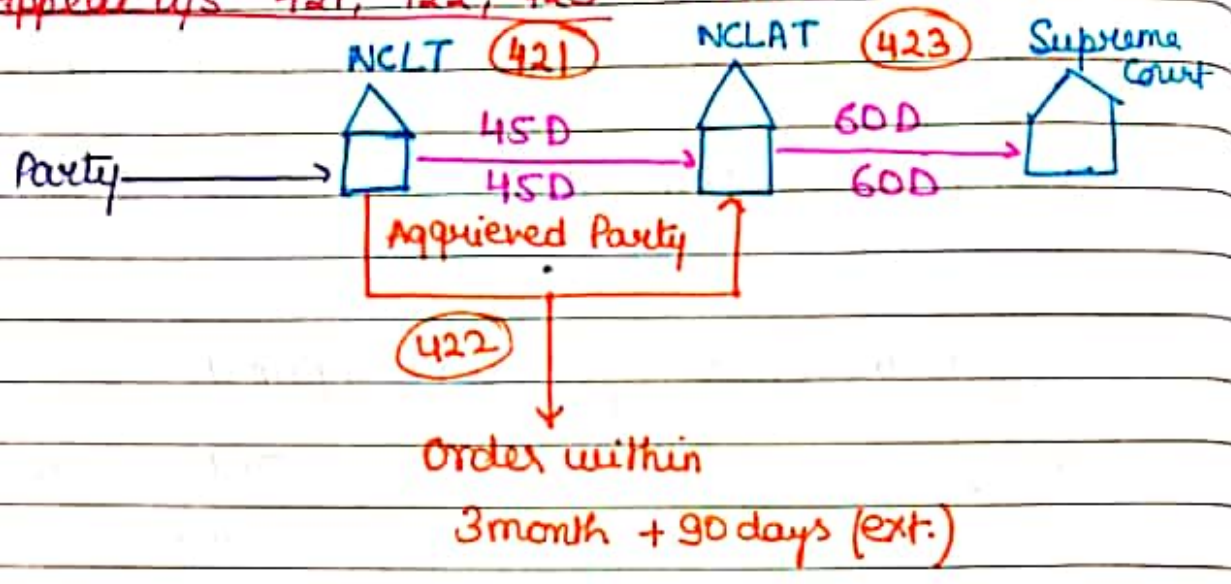 421, 422,
NCLT 421 NCLAT 423 Supreme Court
45D 60D
Party
45D 60D
Aggrieved Party
422
Order within
3month + 90 days (ext.)